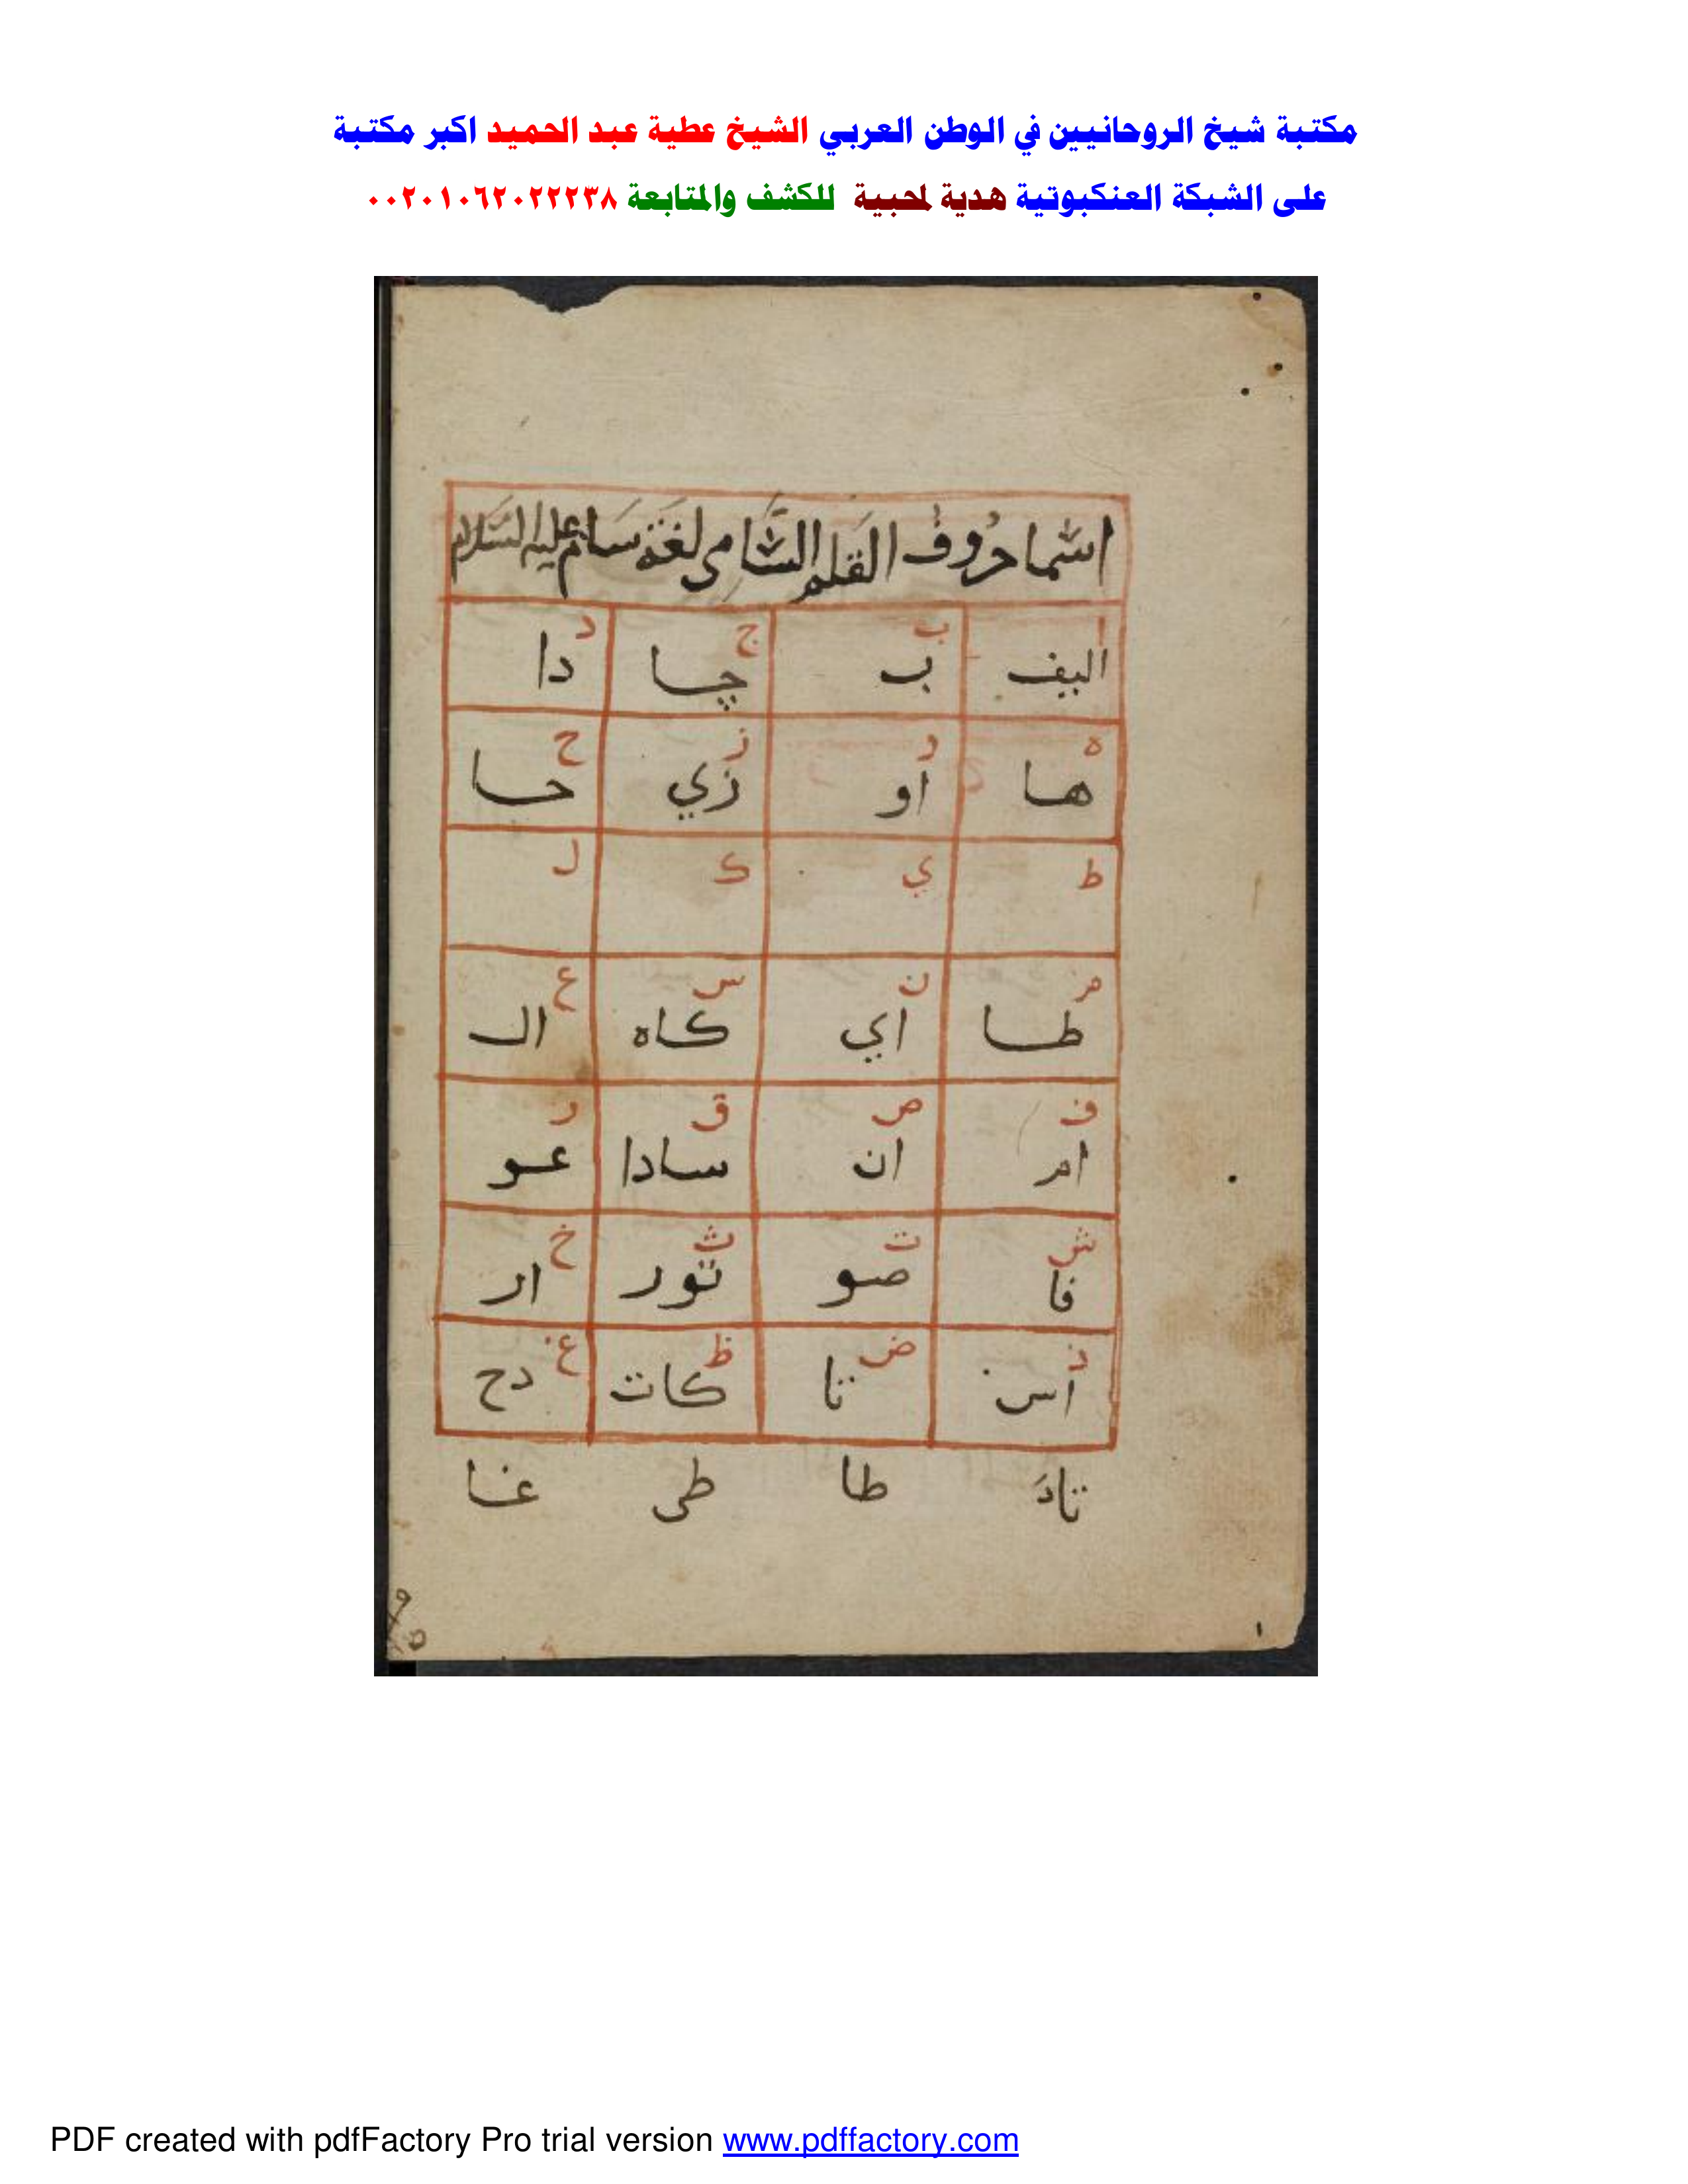 مكتبة شيخ الروحانيين في الوطن العربي الشيخ عطية عبد الحميد اكبر مكتبة
على الشبكة العنكبوتية هدية لمحبية للكشف والمتابعة ٠٠٢٠١٠٦٢٠٢٢٢٣٨
اسما حروف القلم الشامي لغة سام عليه السلام
ا ب ج د
اليف ب چا دا
ه و ز ح
ها او زي حا
ط ي ك ل
م ن س ع
طا اي كاه ال
ف ص ق ر
ام ان سادا عو
ش ت ث خ
فا صو تور ار
ذ ض ظ غ
اس تا كات دح
تادَ طا طى غا
PDF created with pdfFactory Pro trial version www.pdffactory.com